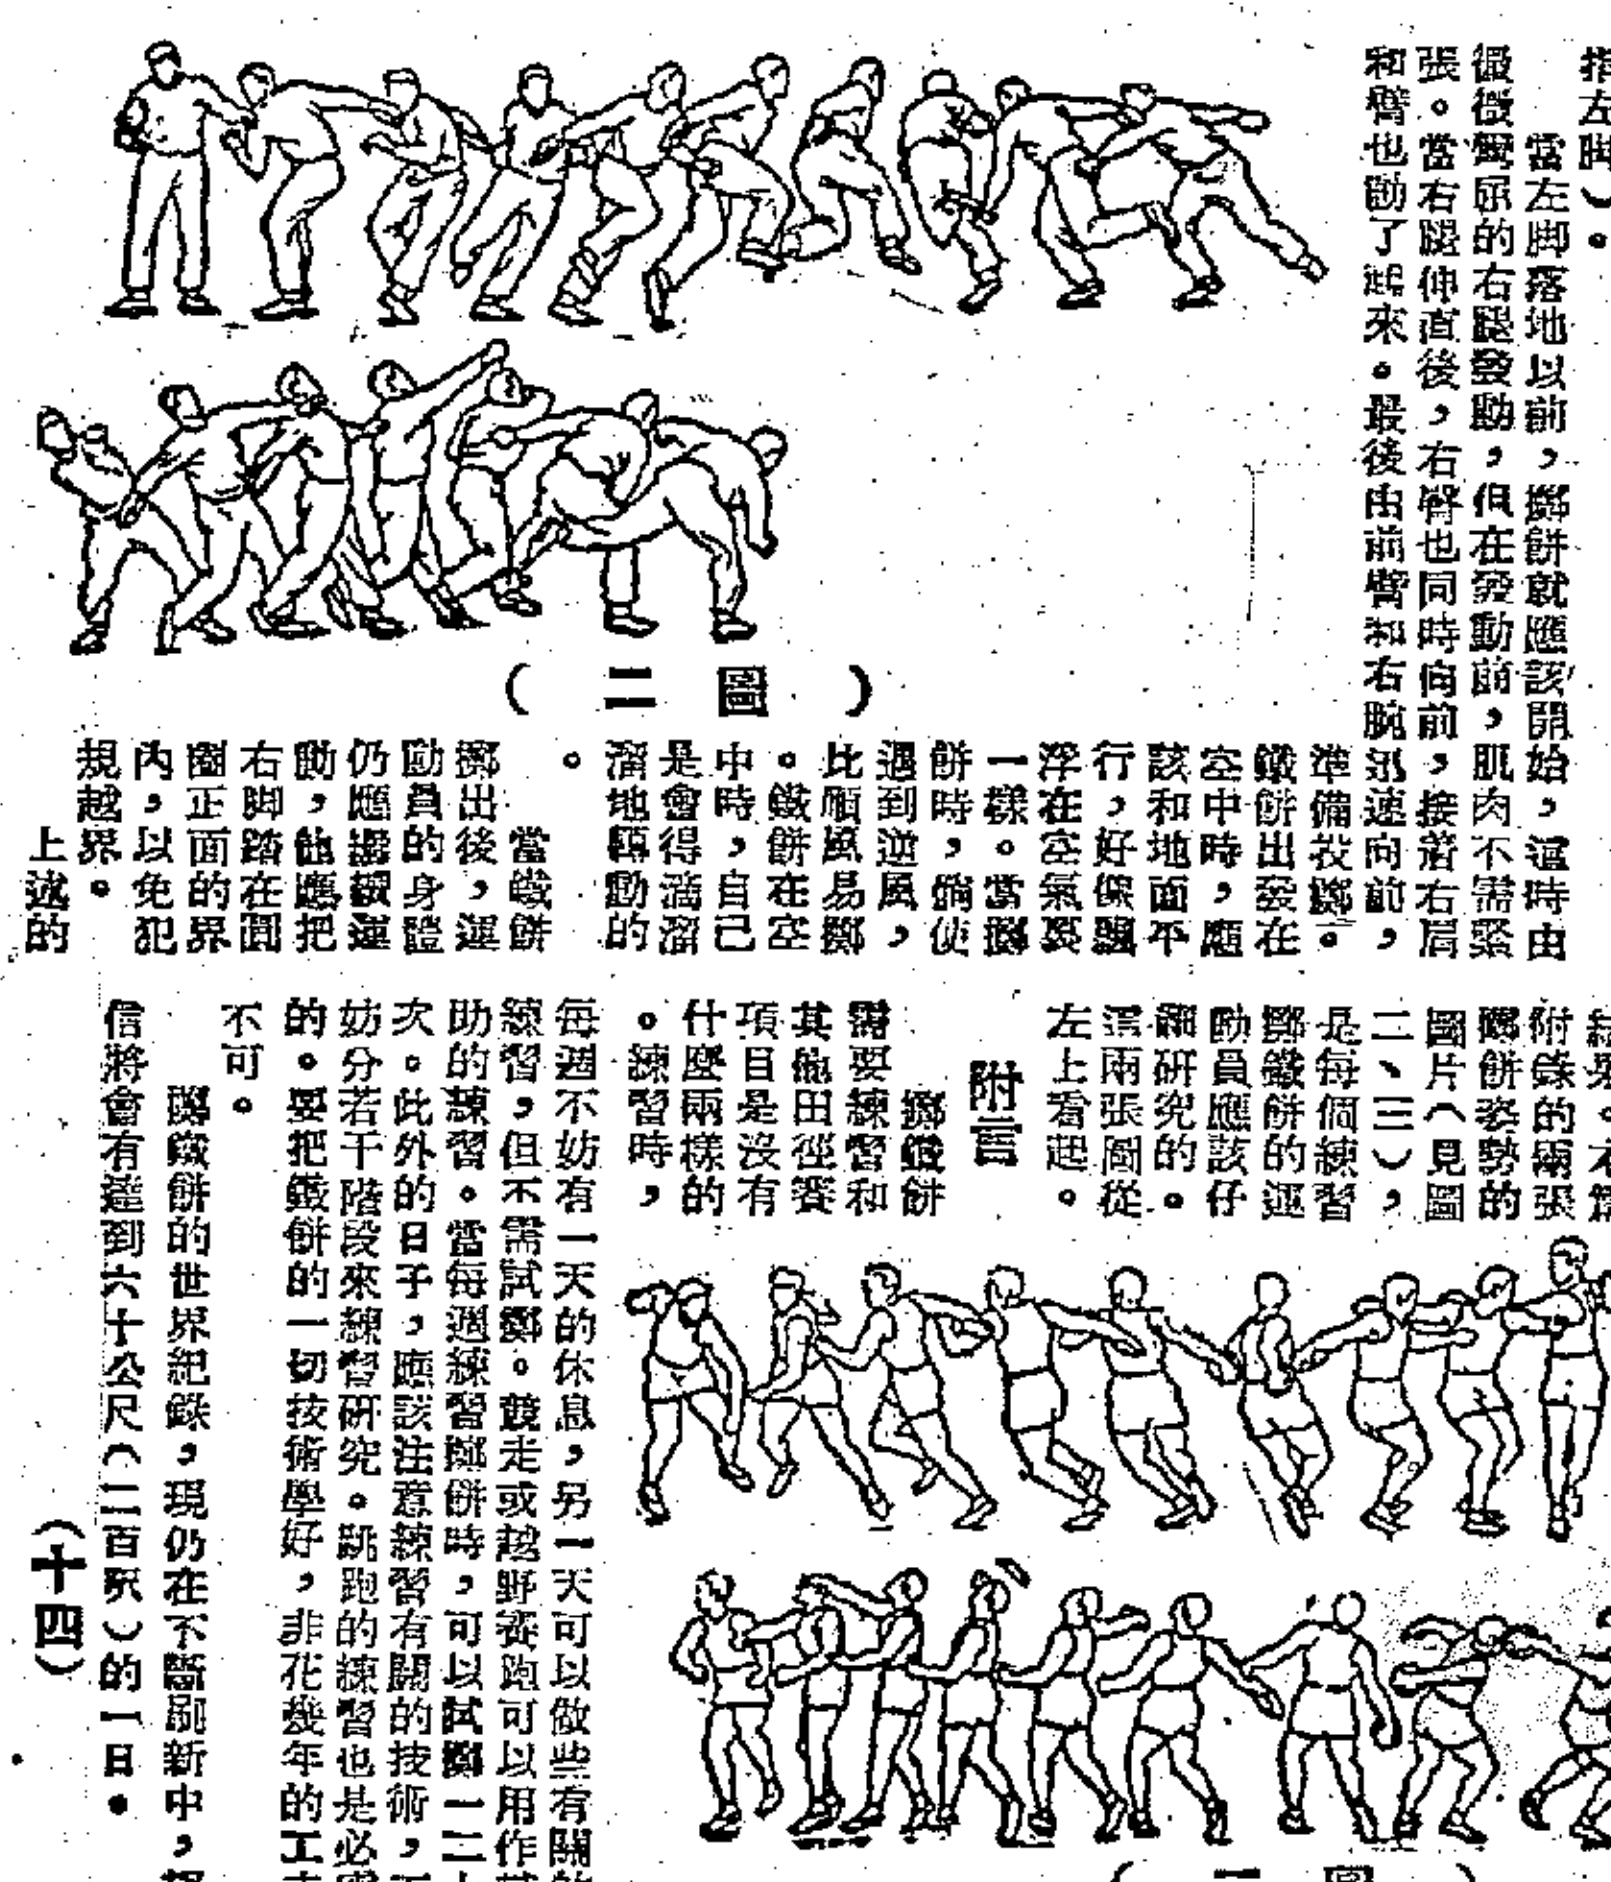 指左脚)。
當左脚落地以前,擲餅就應該開始,這時由
微微彎屈的右腿發動,但在發動前,肌肉不需緊
張。當右腿伸直後,右臂也同時向前,接着右肩
和臂也動了起來。最後由前臂和右腕迅速向前,
準備投擲。
鐵餅出發在
空中時,應
該和地面平
行,好像飄
浮在空氣裏
一樣。當擲
餅時,倘使
遇到逆風,
比順風易擲
。鐵餅在空
中時,自己
是會得滴溜
溜地轉動的
。
當鐵餅
擲出後,運
動員的身體
仍應繼續運
動,他應把
右脚踏在圓
圈正面的界
內,以免犯
規越界。
上述的
(圖二)
附錄的兩張
擲餅姿勢的
圖片(見圖
二、三),
是每個練習
擲鐵餅的運
動員應該仔
細研究的。
這兩張圖從
左上看起。
附言
擲鐵餅
需要練習和
其他田徑賽
項目是沒有
什麼兩樣的
。練習時,
每週不妨有一天的休息,另一天可以做些有關的
練習,但不需試擲。競走或越野賽跑可以用作
助的練習。當每週練習擲餅時,可以試擲一二
次。此外的日子,應該注意練習有關的技術,
妨分若干階段來練習研究。跳跑的練習也是必
的。要把鐵餅的一切技術學好,非花幾年的工
不可。
擲鐵餅的世界紀錄,現仍在不斷刷新中,
信將會有達到六十公尺(二百呎)的一日。
(十四)